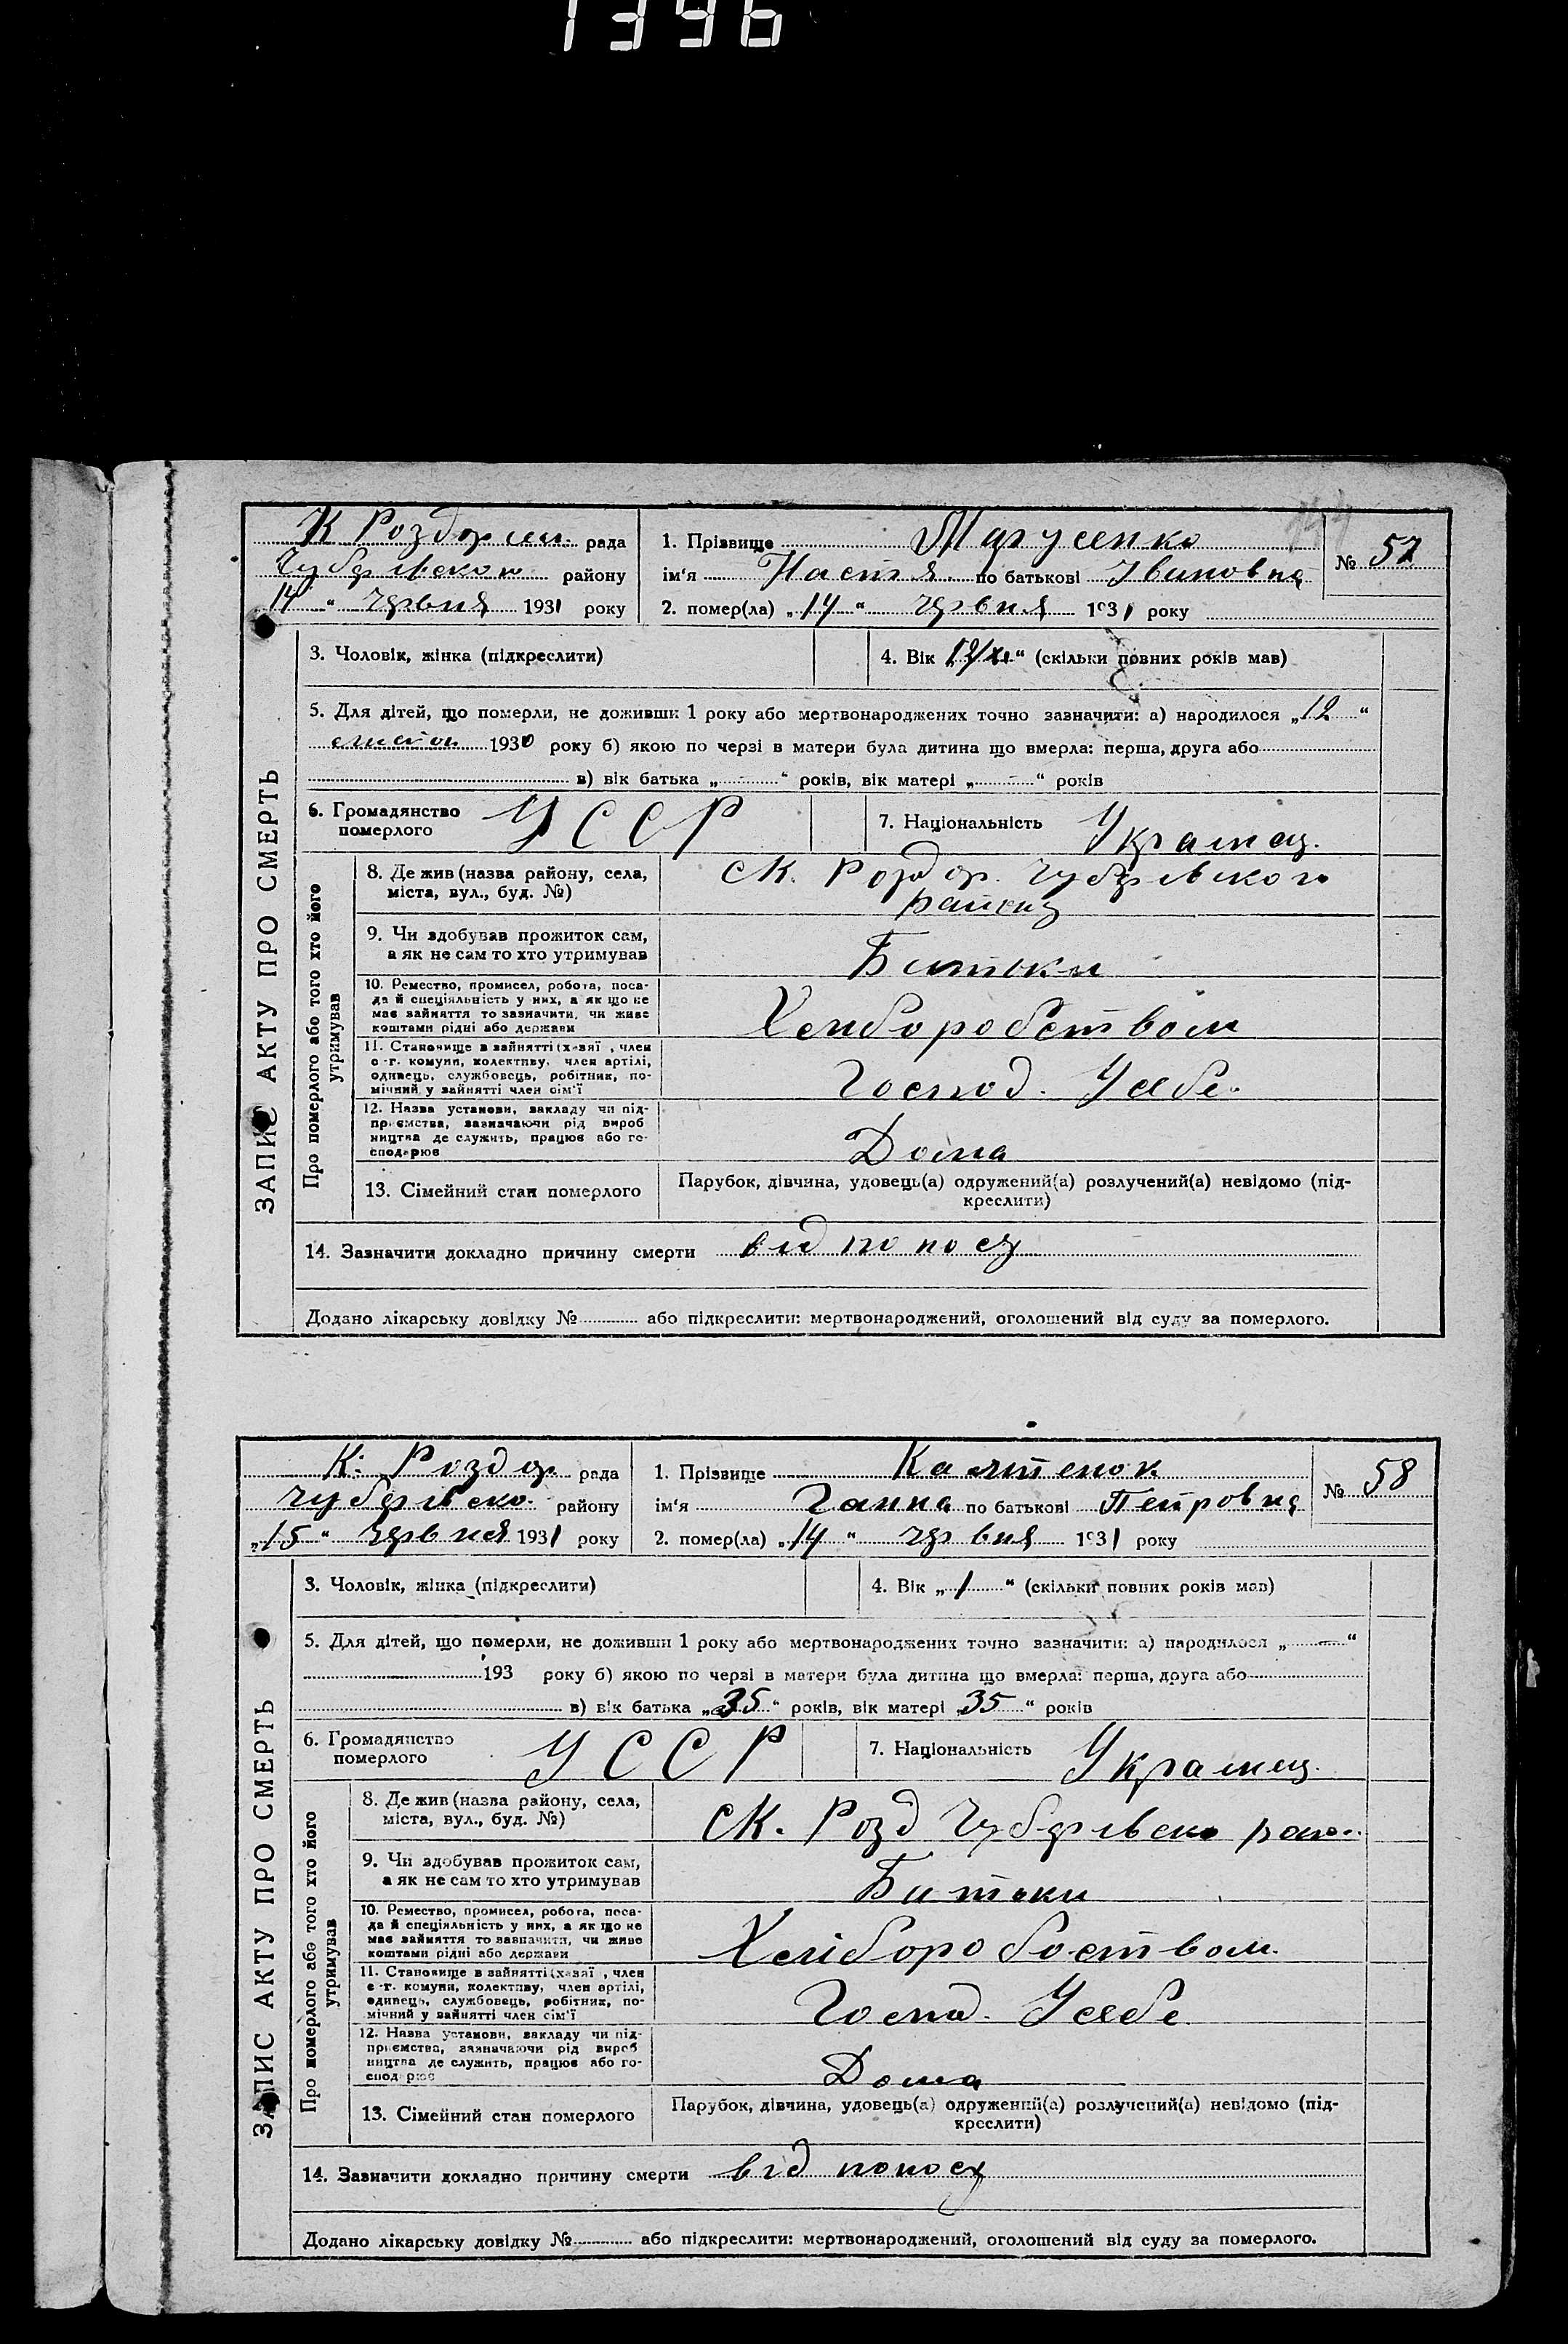 1396
К Роздорськ. рада
Чубарівского району
14 " червня 1931 року
1. Прізвище Марусенко
ім'я Настя по батькові Івановна
№ 57
2. помер(ла) „ 14 " червня 1931 року
ЗАПИС АКТУ ПРО СМЕРТЬ
3. Чоловік, жінка (підкреслити)
4. Вік " (скільки повних років мав)
5. Для дітей, що померли, не доживши 1 року або мертвонароджених точно зазначити: а) народилося „ 12 "
1930 року б) якою по черзі в матери була дитина що вмерла: перша, друга або
в) вік батька „ - " років, вік матері „ - " років
6. Громадянство
померлого
УССР
7. Національність Українц.
Про померлого або того хто його
утримував
8. Де жив (назва району, села,
міста, вул., буд. №)
с К. Роздор. Чубарівского
району
9. Чи здобував прожиток сам,
а як не сам то хто утримував
Батьки
10. Ремество, промисел, робота, поса-
да й спеціяльність у них, а як що не
має зайняття то зазначити, чи живе
коштами рідні або держави
Хліборобством
11. Становище в зайнятті (х-зяї , член
с-г. комуни, колективу, член артілі,
одинець, службовець, робітник, по-
мічний у зайнятті член сім'ї
Господ. У себе.
12. Назва установи, закладу чи під-
приємства, зазначаючи рід вироб
ництва де служить, працює або го-
сподарює
Дома
13. Сімейний стан померлого
Парубок, дівчина, удовець(а) одружений(а) розлучений(а) невідомо (під-
креслити)
14. Зазначити докладно причину смерти від поносу
Додано лікарську довідку № або підкреслити: мертвонароджений, оголошений від суду за померлого.
К. Роздор. рада
Чубарівско. району
„ 15 " червня 1931 року
1. Прізвище Калитенок
ім'я Ганна по батькові Петровна
№ 58
2. помер(ла) „ 14 " червня 1931 року
ЗАПИС АКТУ ПРО СМЕРТЬ
3. Чоловік, жінка (підкреслити)
4. Вік „ 1 " (скільки повних років мав)
5. Для дітей, що померли, не доживши 1 року або мертвонароджених точно зазначити: а) народилося „ — "
193 року б) якою по черзі в матери була дитина що вмерла: перша, друга або
в) вік батька „ 35 " років, вік матері „ 35 " років
6. Громадянство
померлого
УССР
7. Національність Українц.
Про померлого або того хто його
утримував
8. Де жив (назва району, села,
міста, вул., буд. №)
с К. Розд Чубарівско рано.
9. Чи здобував прожиток сам,
а як не сам то хто утримував
Батьки
10. Ремество, промисел, робота, поса-
да й спеціяльність у них, а як що не
має зайняття то зазначити, чи живе
коштами рідні або держави
Хліборобоством
11. Становище в зайнятті (х-зяї , член
с-г. комуни, колективу, член артілі,
одинець, службовець, робітник, по-
мічний у зайнятті член сім'ї
Госпд. У себе
12. Назва установи, закладу чи під-
приємства, зазначаючи рід вироб
ництва де служить, працює або го-
сподарює
Дома
13. Сімейний стан померлого
Парубок, дівчина, удовець(а) одружений(а) розлучений(а) невідомо (під-
креслити)
14. Зазначити докладно причину смерти від поносу
Додано лікарську довідку № або підкреслити: мертвонароджений, оголошений від суду за померлого.